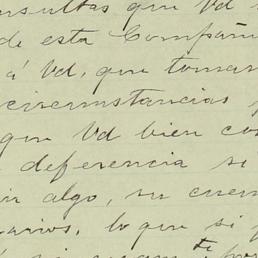 nsultas que Vd
de esta Compañ
á Vd, que toman
circumstancias
que Vd bien co
deferencia se
ir algo, su cuen
arios, lo que si p